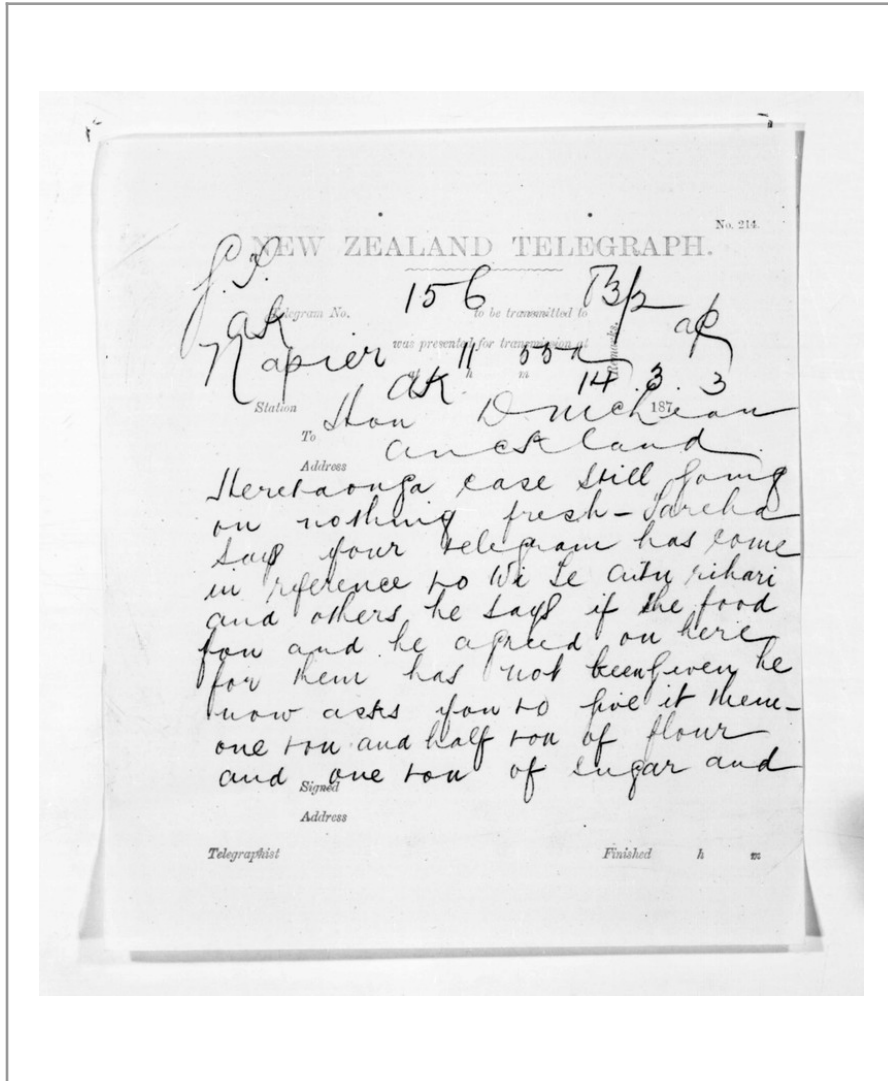 No. 214.
NEW ZEALAND TELEGRAPH.
Telegram No. 156 to be transmitted to
ak
was presented for transmission at Remarks.
Napier 11 h 55 m
ak. 14. 3. 187 3
Station
To Hon D McLean
Address Auckland
Heretaonga case still going
on nothing fresh - Tareha
says your telegram has come
in reference to Wi Te
and others he says if the food
you and he agreed on here
for them has not been given he
now asks you to give it them -
one ton and half ton of flour
and one ton of sugar and
Signed
Address
Telegraphist Finished h m